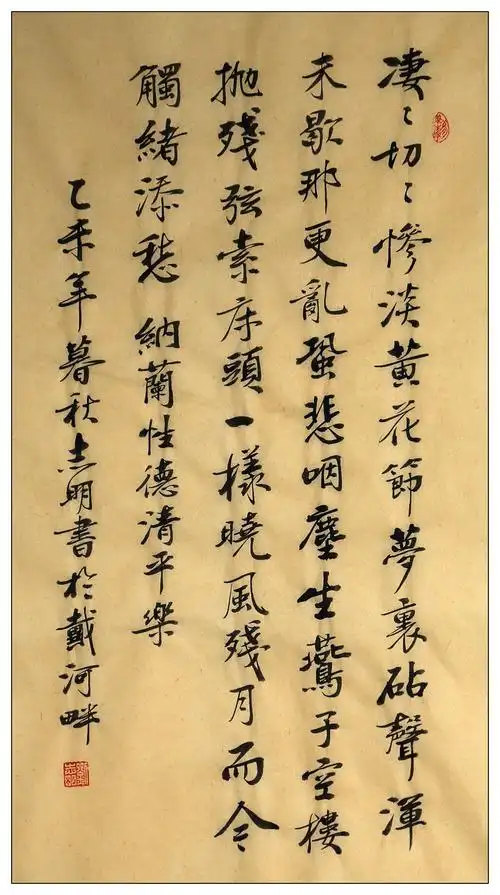 凄〻切〻慘淡黄花節夢裏砧聲渾
未歇那更亂蛩悲咽塵生燕子空樓
抛殘弦索床頭一樣曉風殘月而今
觸緒添愁 納蘭性德清平樂
乙未年暮秋志明書於戴河畔